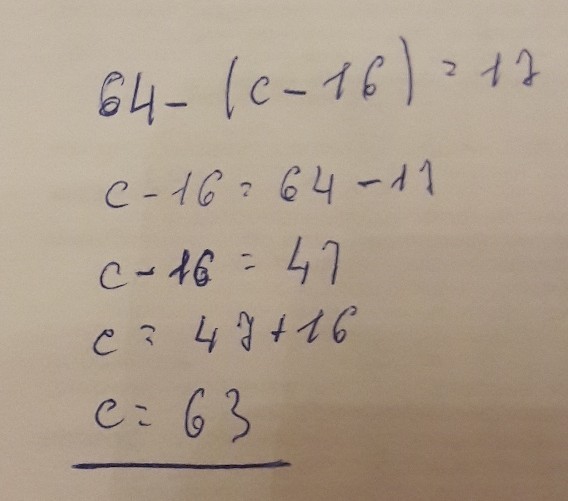 64 - (c - 16) = 17
c - 16 = 64 - 17
c - 16 = 47
c = 47 + 16
c = 63